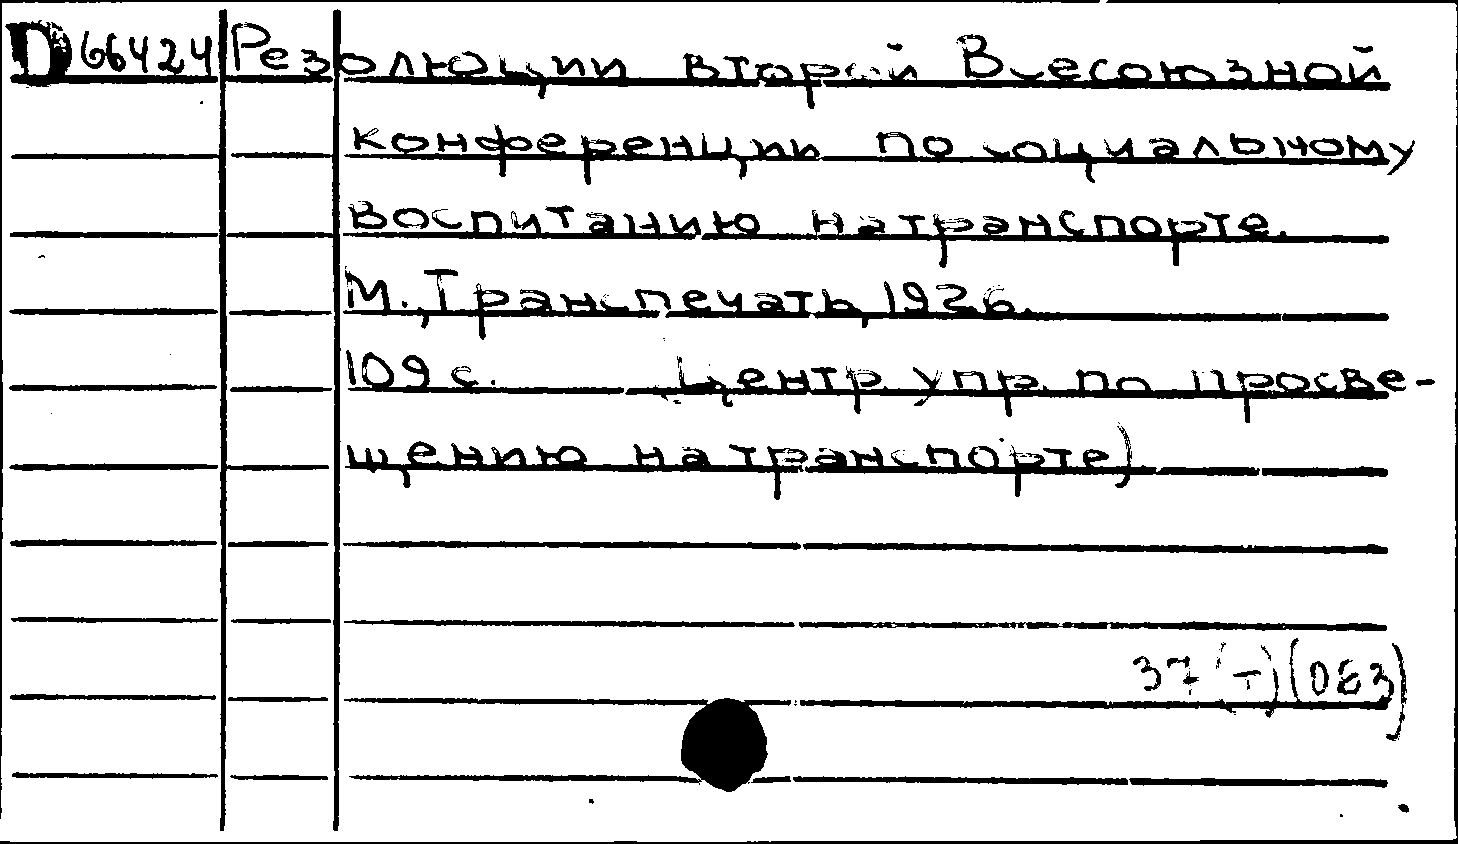 D 66424 Резолюции второй Всесоюзной
конференции по социальному
воспитанию на транспорте.
М., Транспечать, 1926.
109 с. (Центр. упр. по просве-
щению на транспорте)
37 (Т) (063)